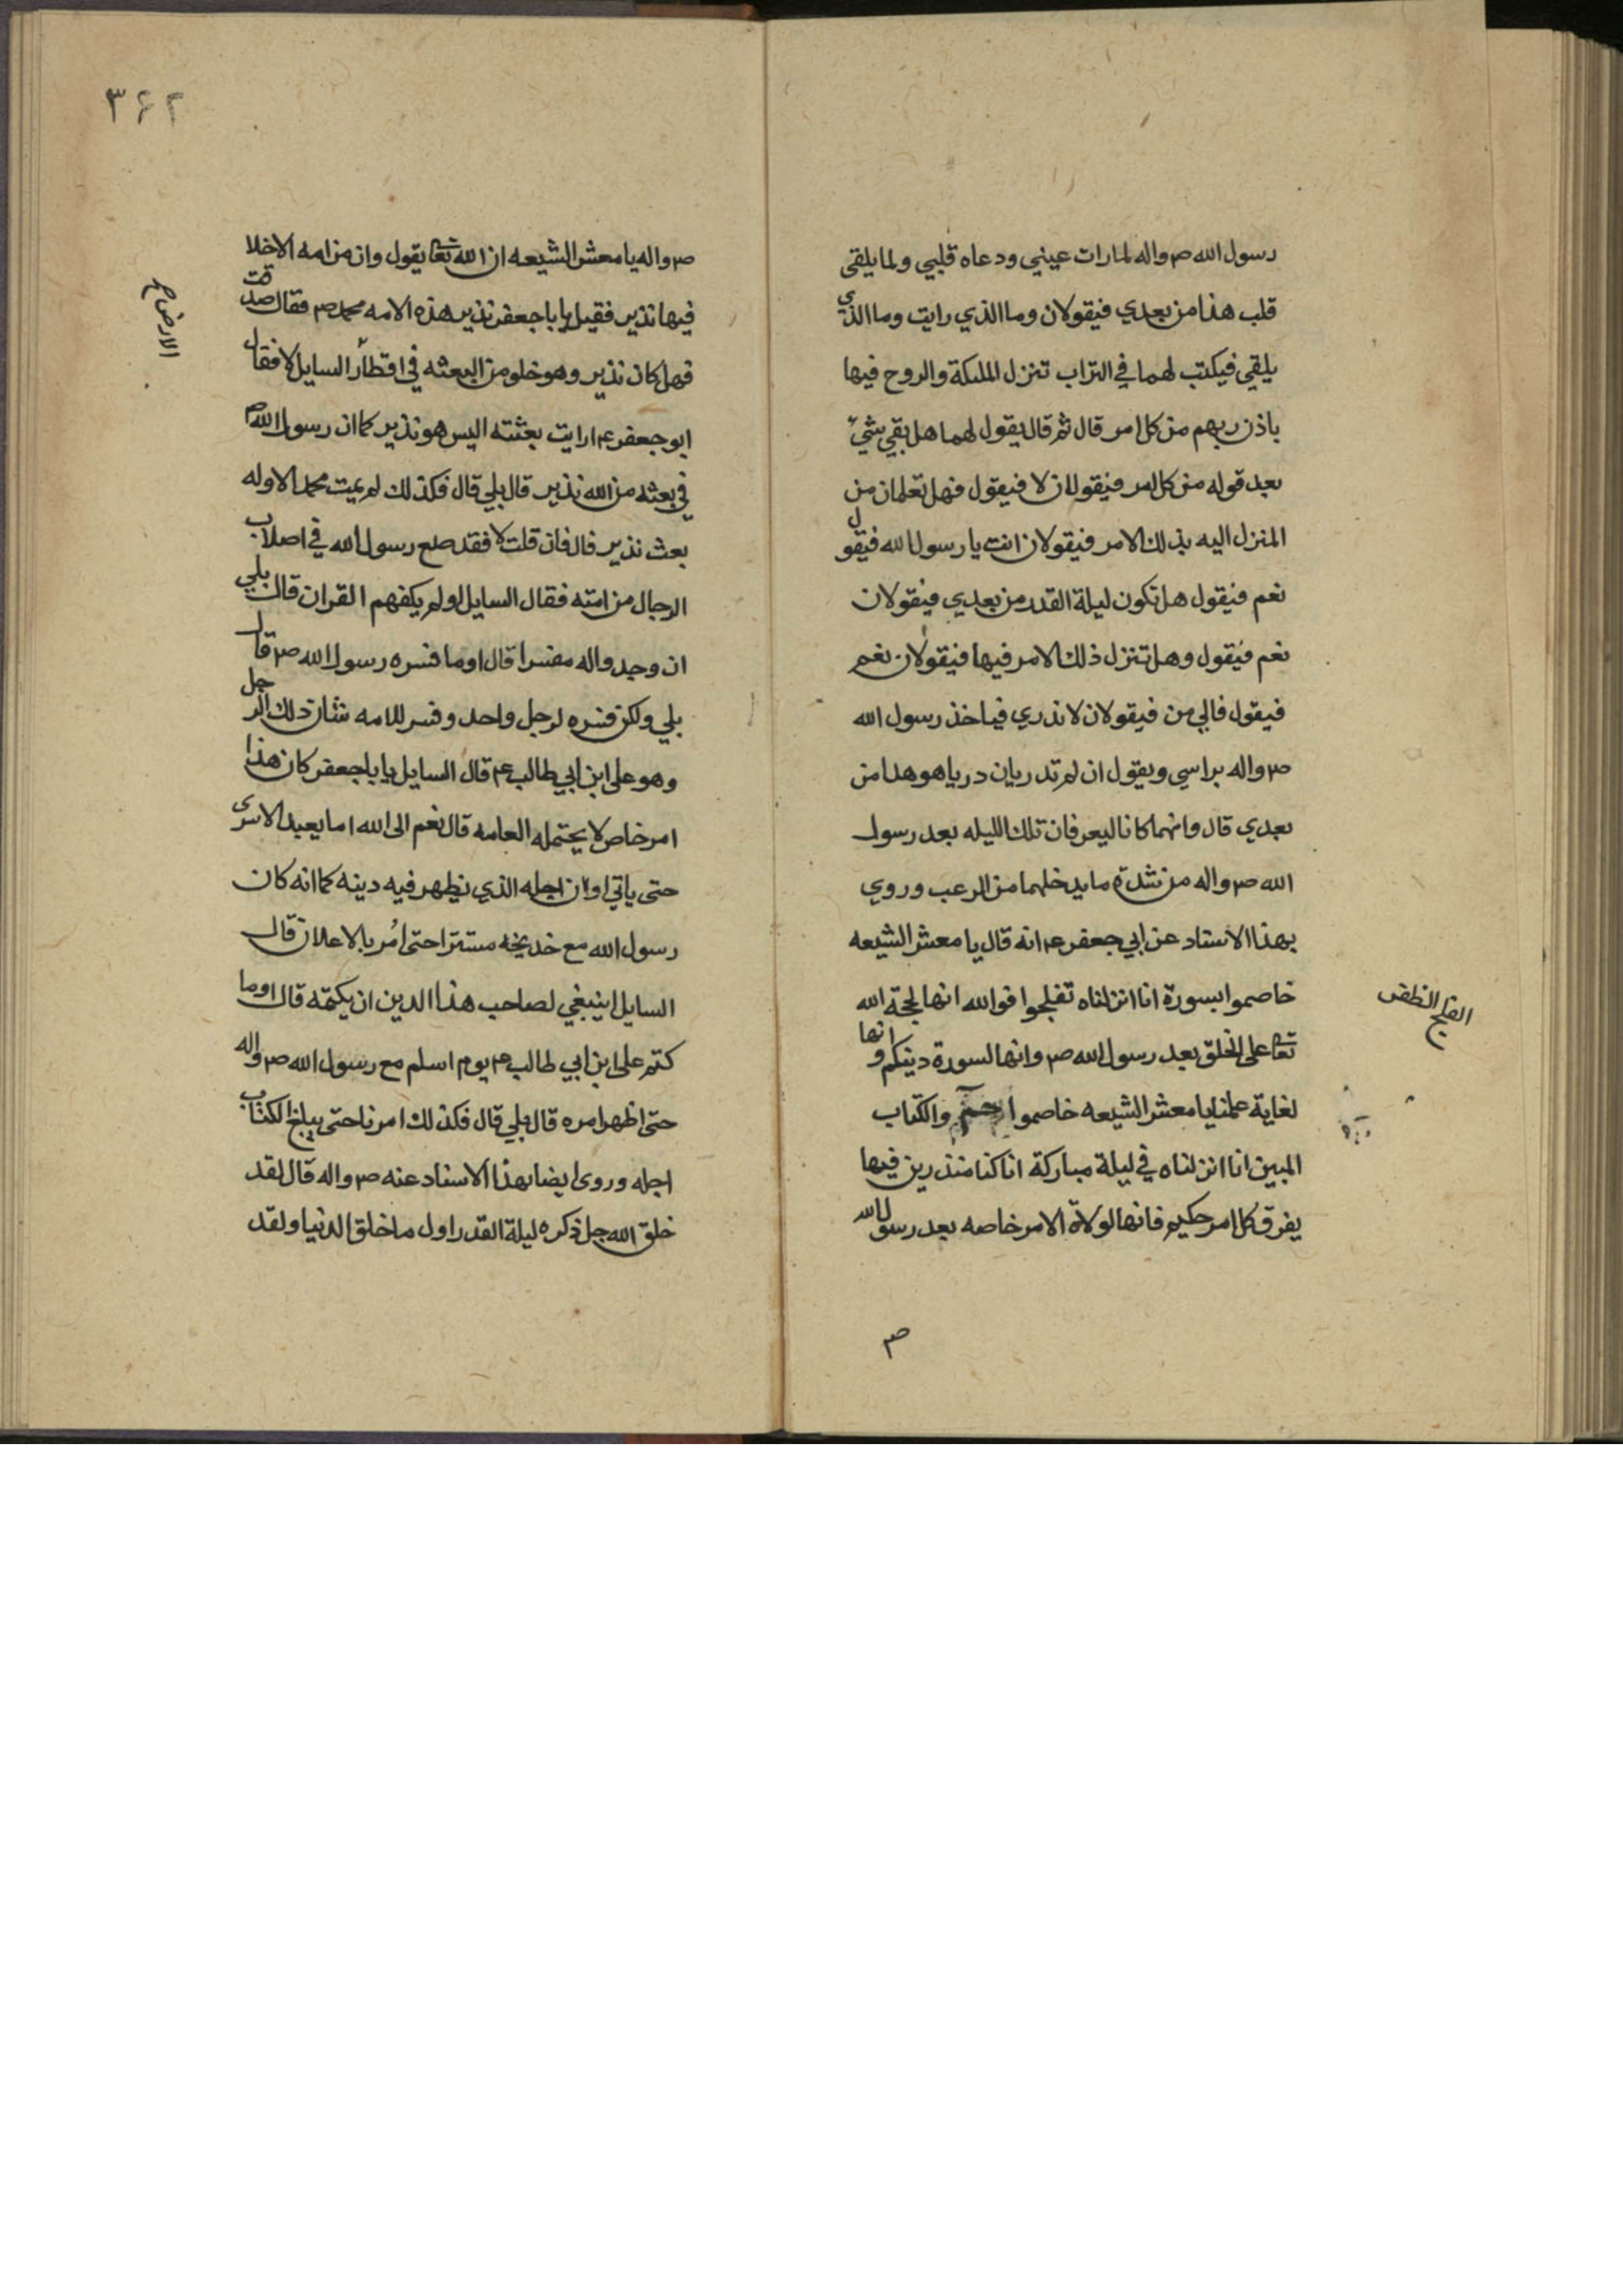 رسول الله صم واله لمارات عيني ودعاه قلبي ولما يلقى
قلب هذا من بعدي فيقولان وما الذي رايت وما الذي
يلقي فيكتب لهما في التراب تنزل الملىكة والروح فيها
باذن ربهم من كل امر قال ثم قال يقول لهما هل بقي شيء
بعد قوله من كل امر فيقولان لا فيقول فهل تعلمان من
المنزل اليه بذلك الامر فيقولان انت يا رسول الله فيقول
نعم فيقول هل تكون ليلة القدر من بعدي فيقولان
نعم فيقول وهل تنزل ذلك الامر فيها فيقولان نعم
فيقول فالي من فيقولان لا ندري فياخذ رسول الله
صم واله براسي ويقول ان لم تدريان دريا هو هدا من
بعدي قال وانهما كانا ليعرفان تلك الليله بعد رسول
الله صم واله من شدة ما يدخلهما من الرعب وروي
بهذا الاسناد عن ابي جعفر عم انه قال يا معشر الشيعه
خاصموا بسورة انا انزلناه تفلجوا فوالله انها لحجة الله
تعا على الخلق بعد رسول الله صم وانها لسورة دينكم وانها
لغاية علمنا يا معشر الشيعه خاصموا بحم والكتاب
المبين انا انزلناه في ليلة مباركة انا كنا منذرين فيها
يفرق كل امر حكيم فانها لولاة الامر خاصه بعد رسول الله
صم
الفلج الظفر
٣٤٢
صم واله يا معشر الشيعه ان الله تعا يقول وان من امه الاخلا
فيها نذير فقيل يا باجعفر نذير هذه الامه محمد صم فقال صدقت
فهل كان نذير وهو خلو من البعثه في اقطار السايل لا فقال
ابو جعفر عم ارايت بعثته اليس هو نذير كما ان رسول الله صم
في بعثه من الله نذير قال بلي قال فكذلك لم يمت محمد الاوله
بعث نذير قال فان قلت لا فقد ضيع رسول الله في اصلاب
الرجال من امته فقال السايل اولم يكفهم القران قال بلي
ان وجدواله مفسرا قال اوما فسره رسول الله صم قال
بلي ولكن فسره لرجل واحد وفسر للامه شان ذلك الرجل
وهو على ابن ابي طالب عم قال السايل يا باجعفر كان هذا
امر خاص لا يحتمله العامه قال نعم ابى الله اما يعبد الاسرى
حتى ياتي اوان اجله الذي يظهر فيه دينه كما انه كان
رسول الله مع خديجه مستترا حتى أمر بالاعلان قال
السايل اينبغي لصاحب هذا الدين ان يكتمه قال اوما
كتم على ابن ابي طالب عم يوم اسلم مع رسول الله صم واله
حتى اظهر امره قال بلي قال فكذلك امرنا حتى يبلغ الكتاب
اجله وروى ايضا بهذا الاسناد عنه صم واله قال لقد
خلق الله جل ذكره ليلة القدر اول ما خلق الدنيا ولقد
الارض